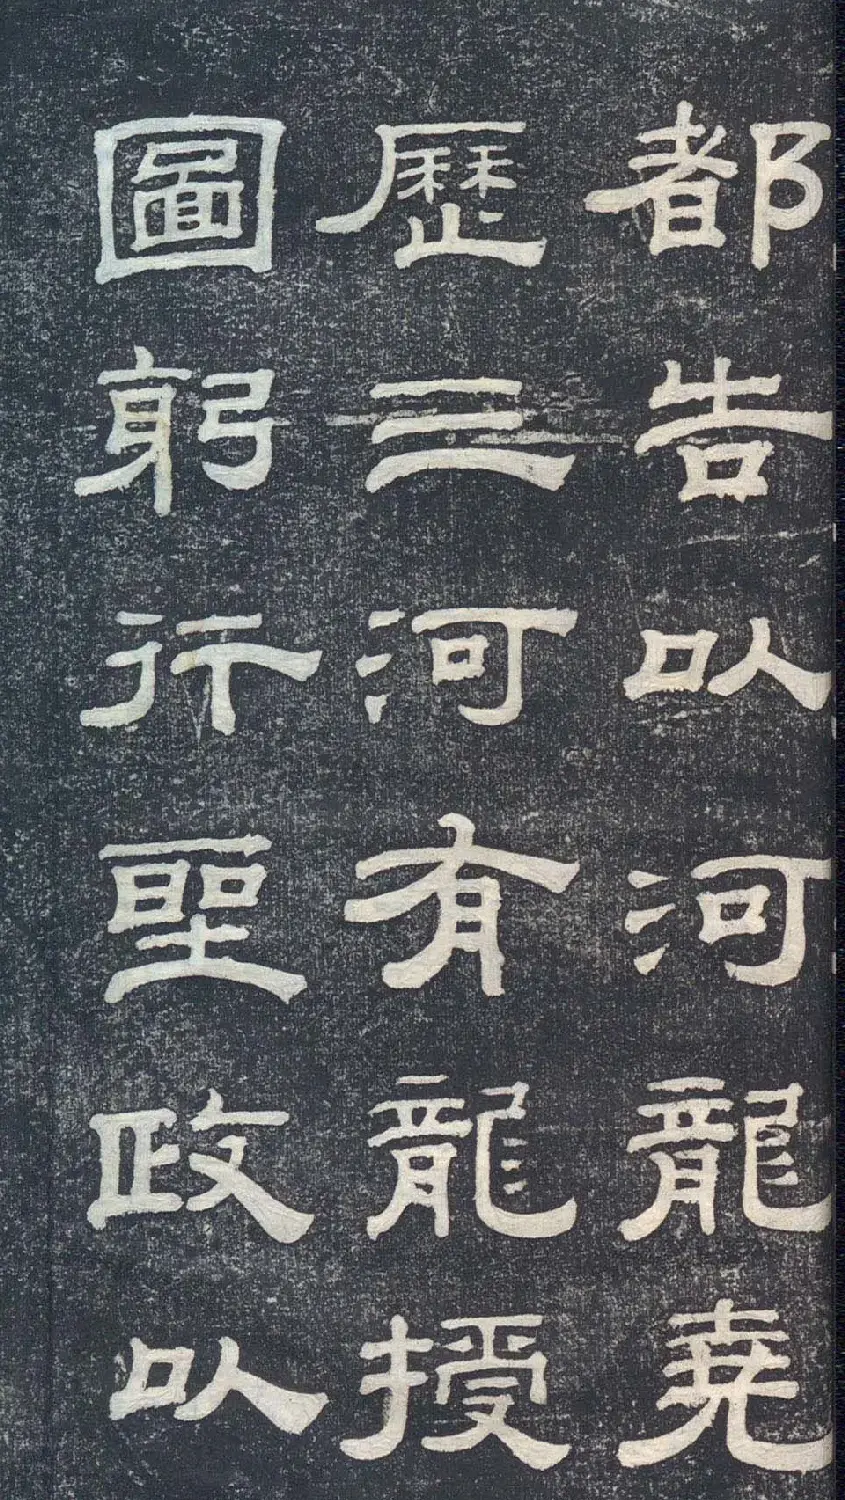 都告以河龍堯
歷三河有龍授
圖躬行聖政以